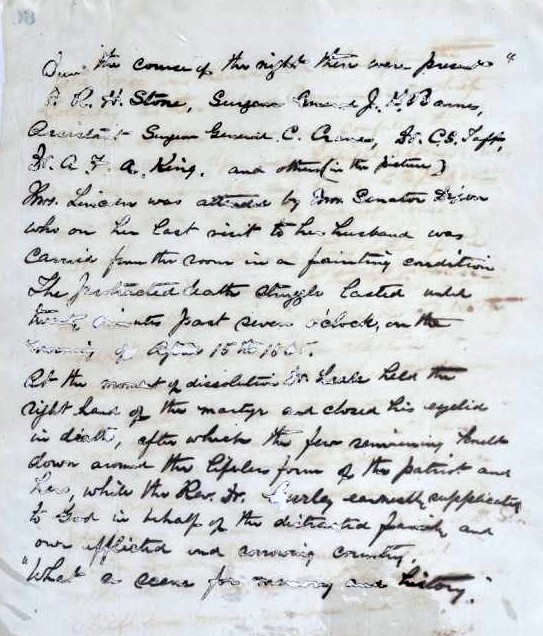 the course of the night there were present "
R. H. Stone, Surgeon General J. K. Barnes,
Assistant Surgeon General C. Crane, Dr. C. S. Taft,
Dr. A. F. A. King, and others (in the picture)
Mrs. Lincoln was attended by Mrs Senator Dixon
who on her last visit to her husband was
carried from the room in a fainting condition
The protracted death struggle lasted until
twenty minutes past seven o'clock, on the
morning of April 15th 1865.
At the moment of dissolution Dr. Leale held the
right hand of the martyr and closed his eyelid
in death, after which the few remaining knelt
down around the lifeless form of the patriot and
hero, while the Rev. Dr. Gurley earnestly supplicated
to God in behalf of the distracted family and
our afflicted and sorrowing country.
"What a scene for memory and history."